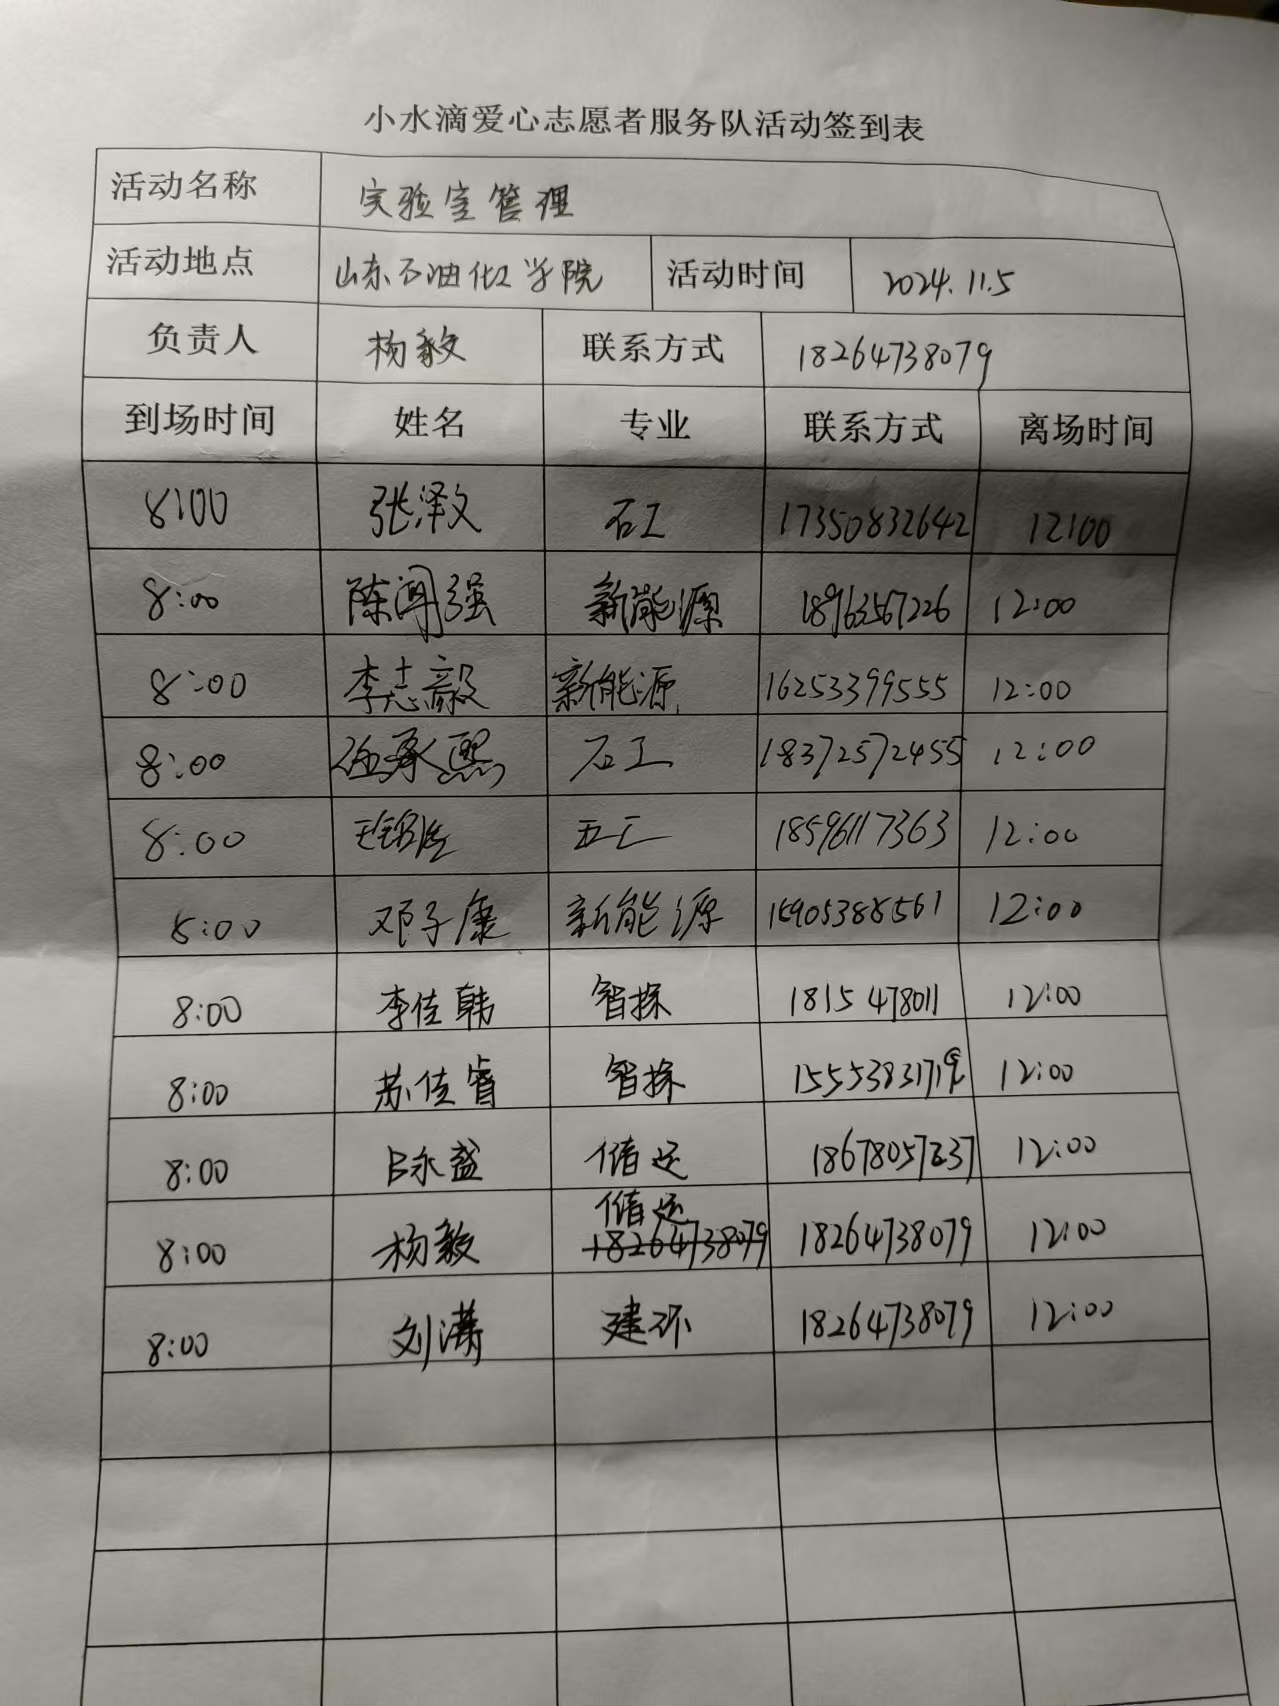 小水滴爱心志愿者服务队活动签到表
活动名称 实验室管理
活动地点 山东石油化工学院 活动时间 2024.11.5
负责人 杨毅 联系方式 18264738079
到场时间 姓名 专业 联系方式 离场时间
8:00 张泽文 石工 17350832642 12:00
8:00 陈闻强 新能源 18963567226 12:00
8:00 李志毅 新能源 16253399555 12:00
8:00 伍承熙 石工 18372572455 12:00
8:00 石工 18596117363 12:00
8:00 邓子康 新能源 12:00
8:00 李佳韩 智探 1815478011 12:00
8:00 苏佳睿 智探 12:00
8:00 吕永益 储运 12:00
储运
8:00 杨毅 18264738079 18264738079 12:00
8:00 刘满 建环 18264738079 12:00